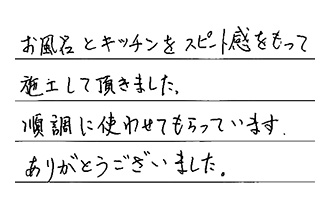 お風呂とキッチンをスピード感をもって
施工して頂きました。
順調に使わせてもらっています.
ありがとうございました。